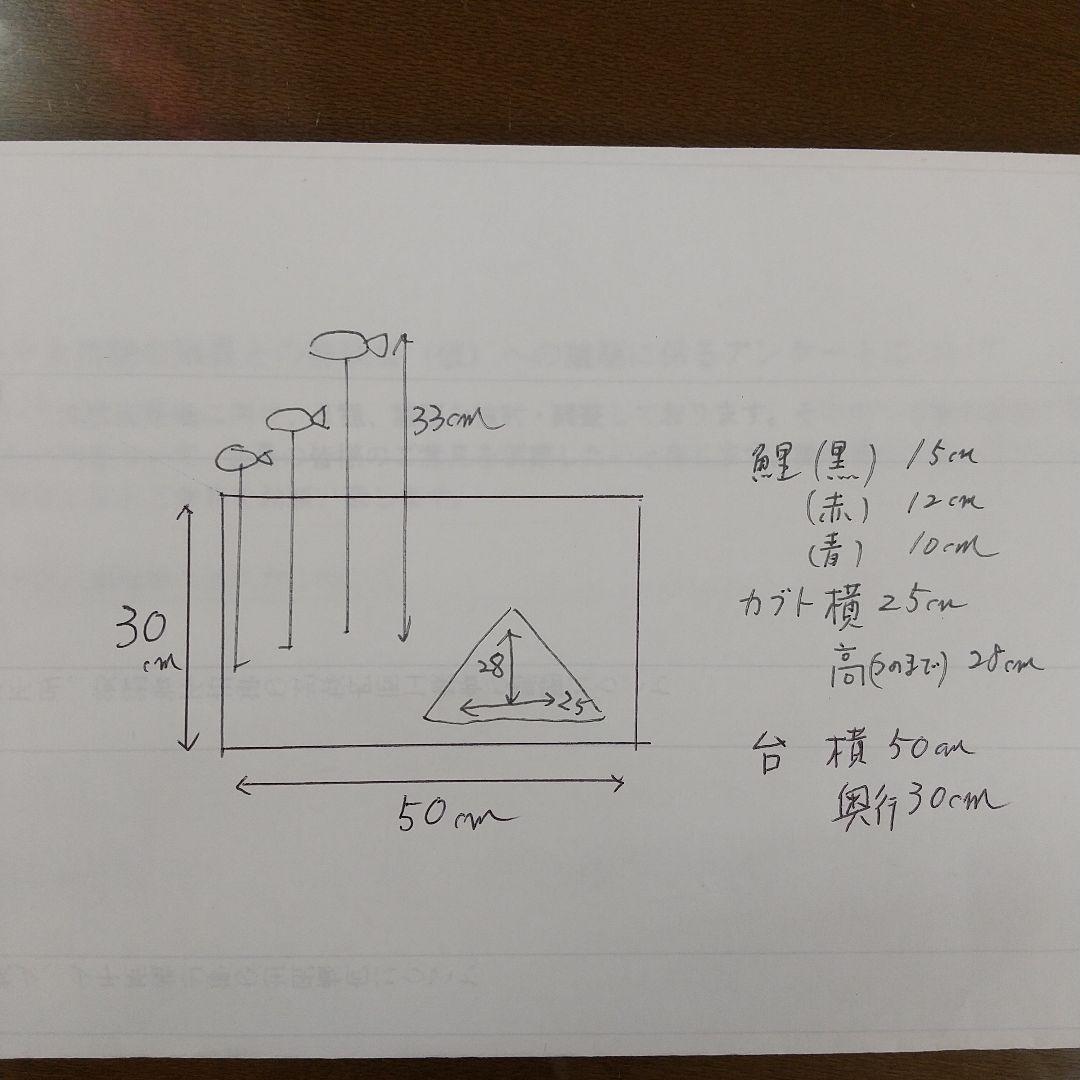 33cm
30
cm
28
25
50cm
鯉(黒) 15cm
(赤) 12cm
(青) 10cm
カブト 横 25cm
高(つのまで) 28cm
台 横 50cm
奥行30cm